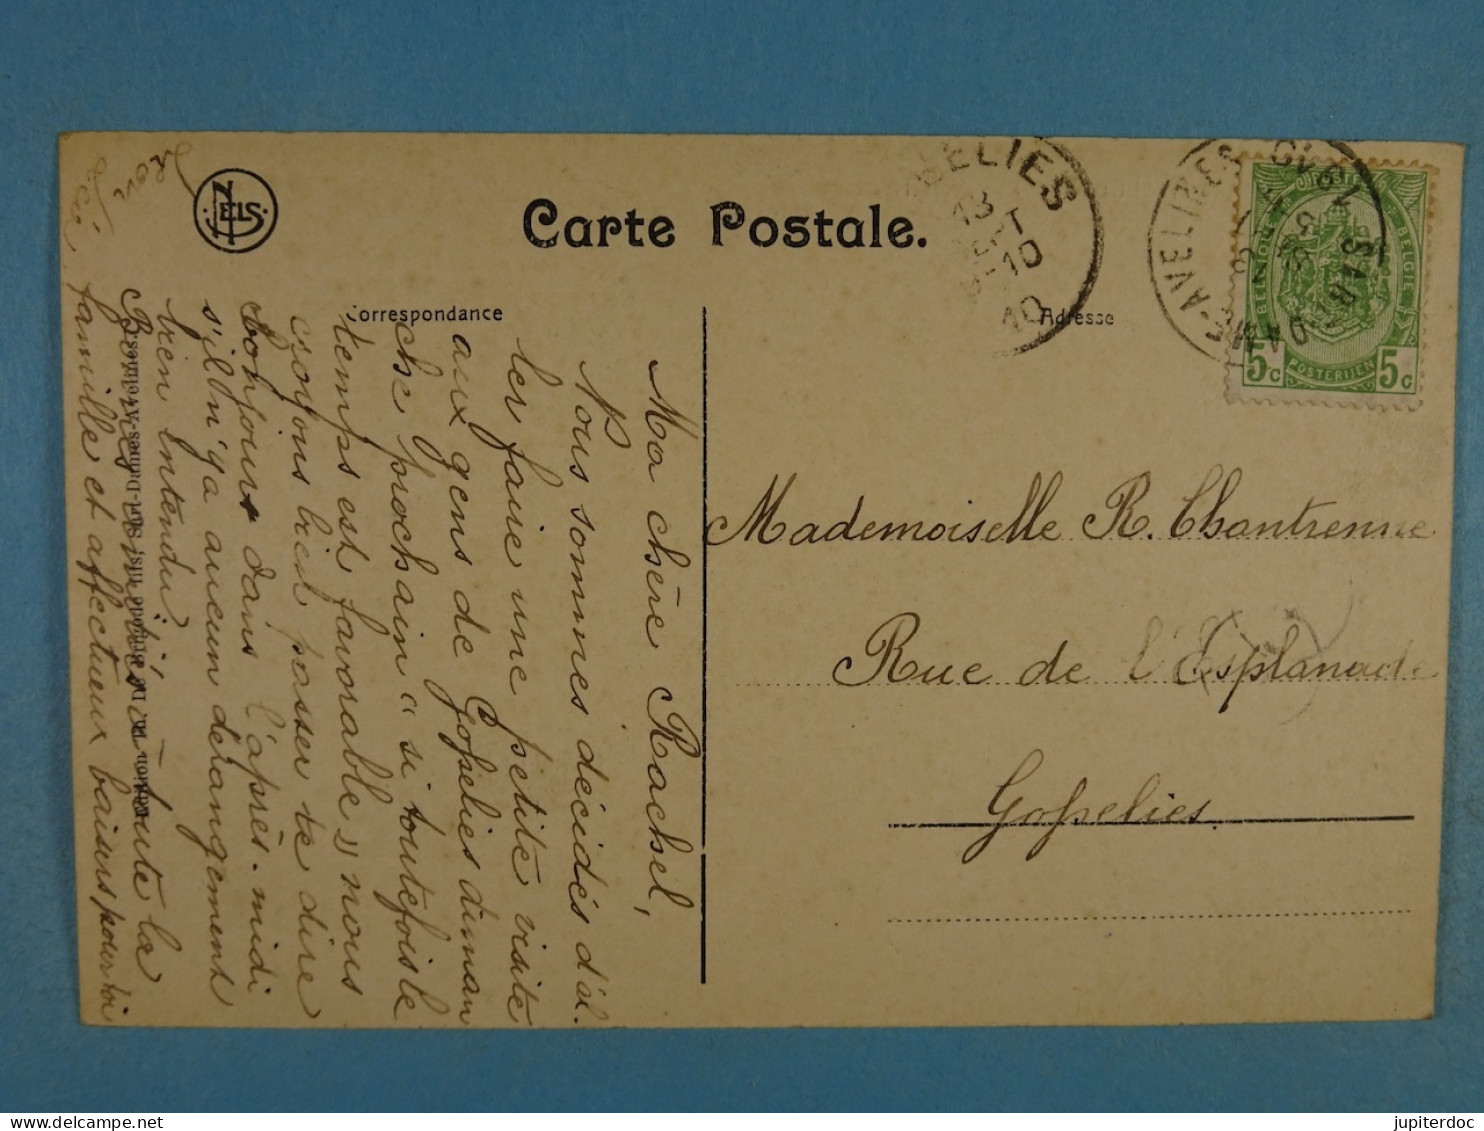 NELS
Carte Postale.
Correspondance
Adresse
Ma chère Rachel,
Nous sommes décidés d'al
ler faire une petite visite
aux gens de Gosselies diman
che prochain " si toutefois le
temps est favorable " nous
croyons bien passer te dire
bonjour dans l'après-midi
s'il n'y a aucun dérangement
bien entendu.
Bonnes amitiés à toute la
famille et affectueux baisers pour toi
Mademoiselle R. Chantrenne
Rue de l'Esplanade
Gosselies.
SELIES
13
SEPT
10
10
-AVELINES
SART
5c 5c
POSTERIJEN
BELGIE